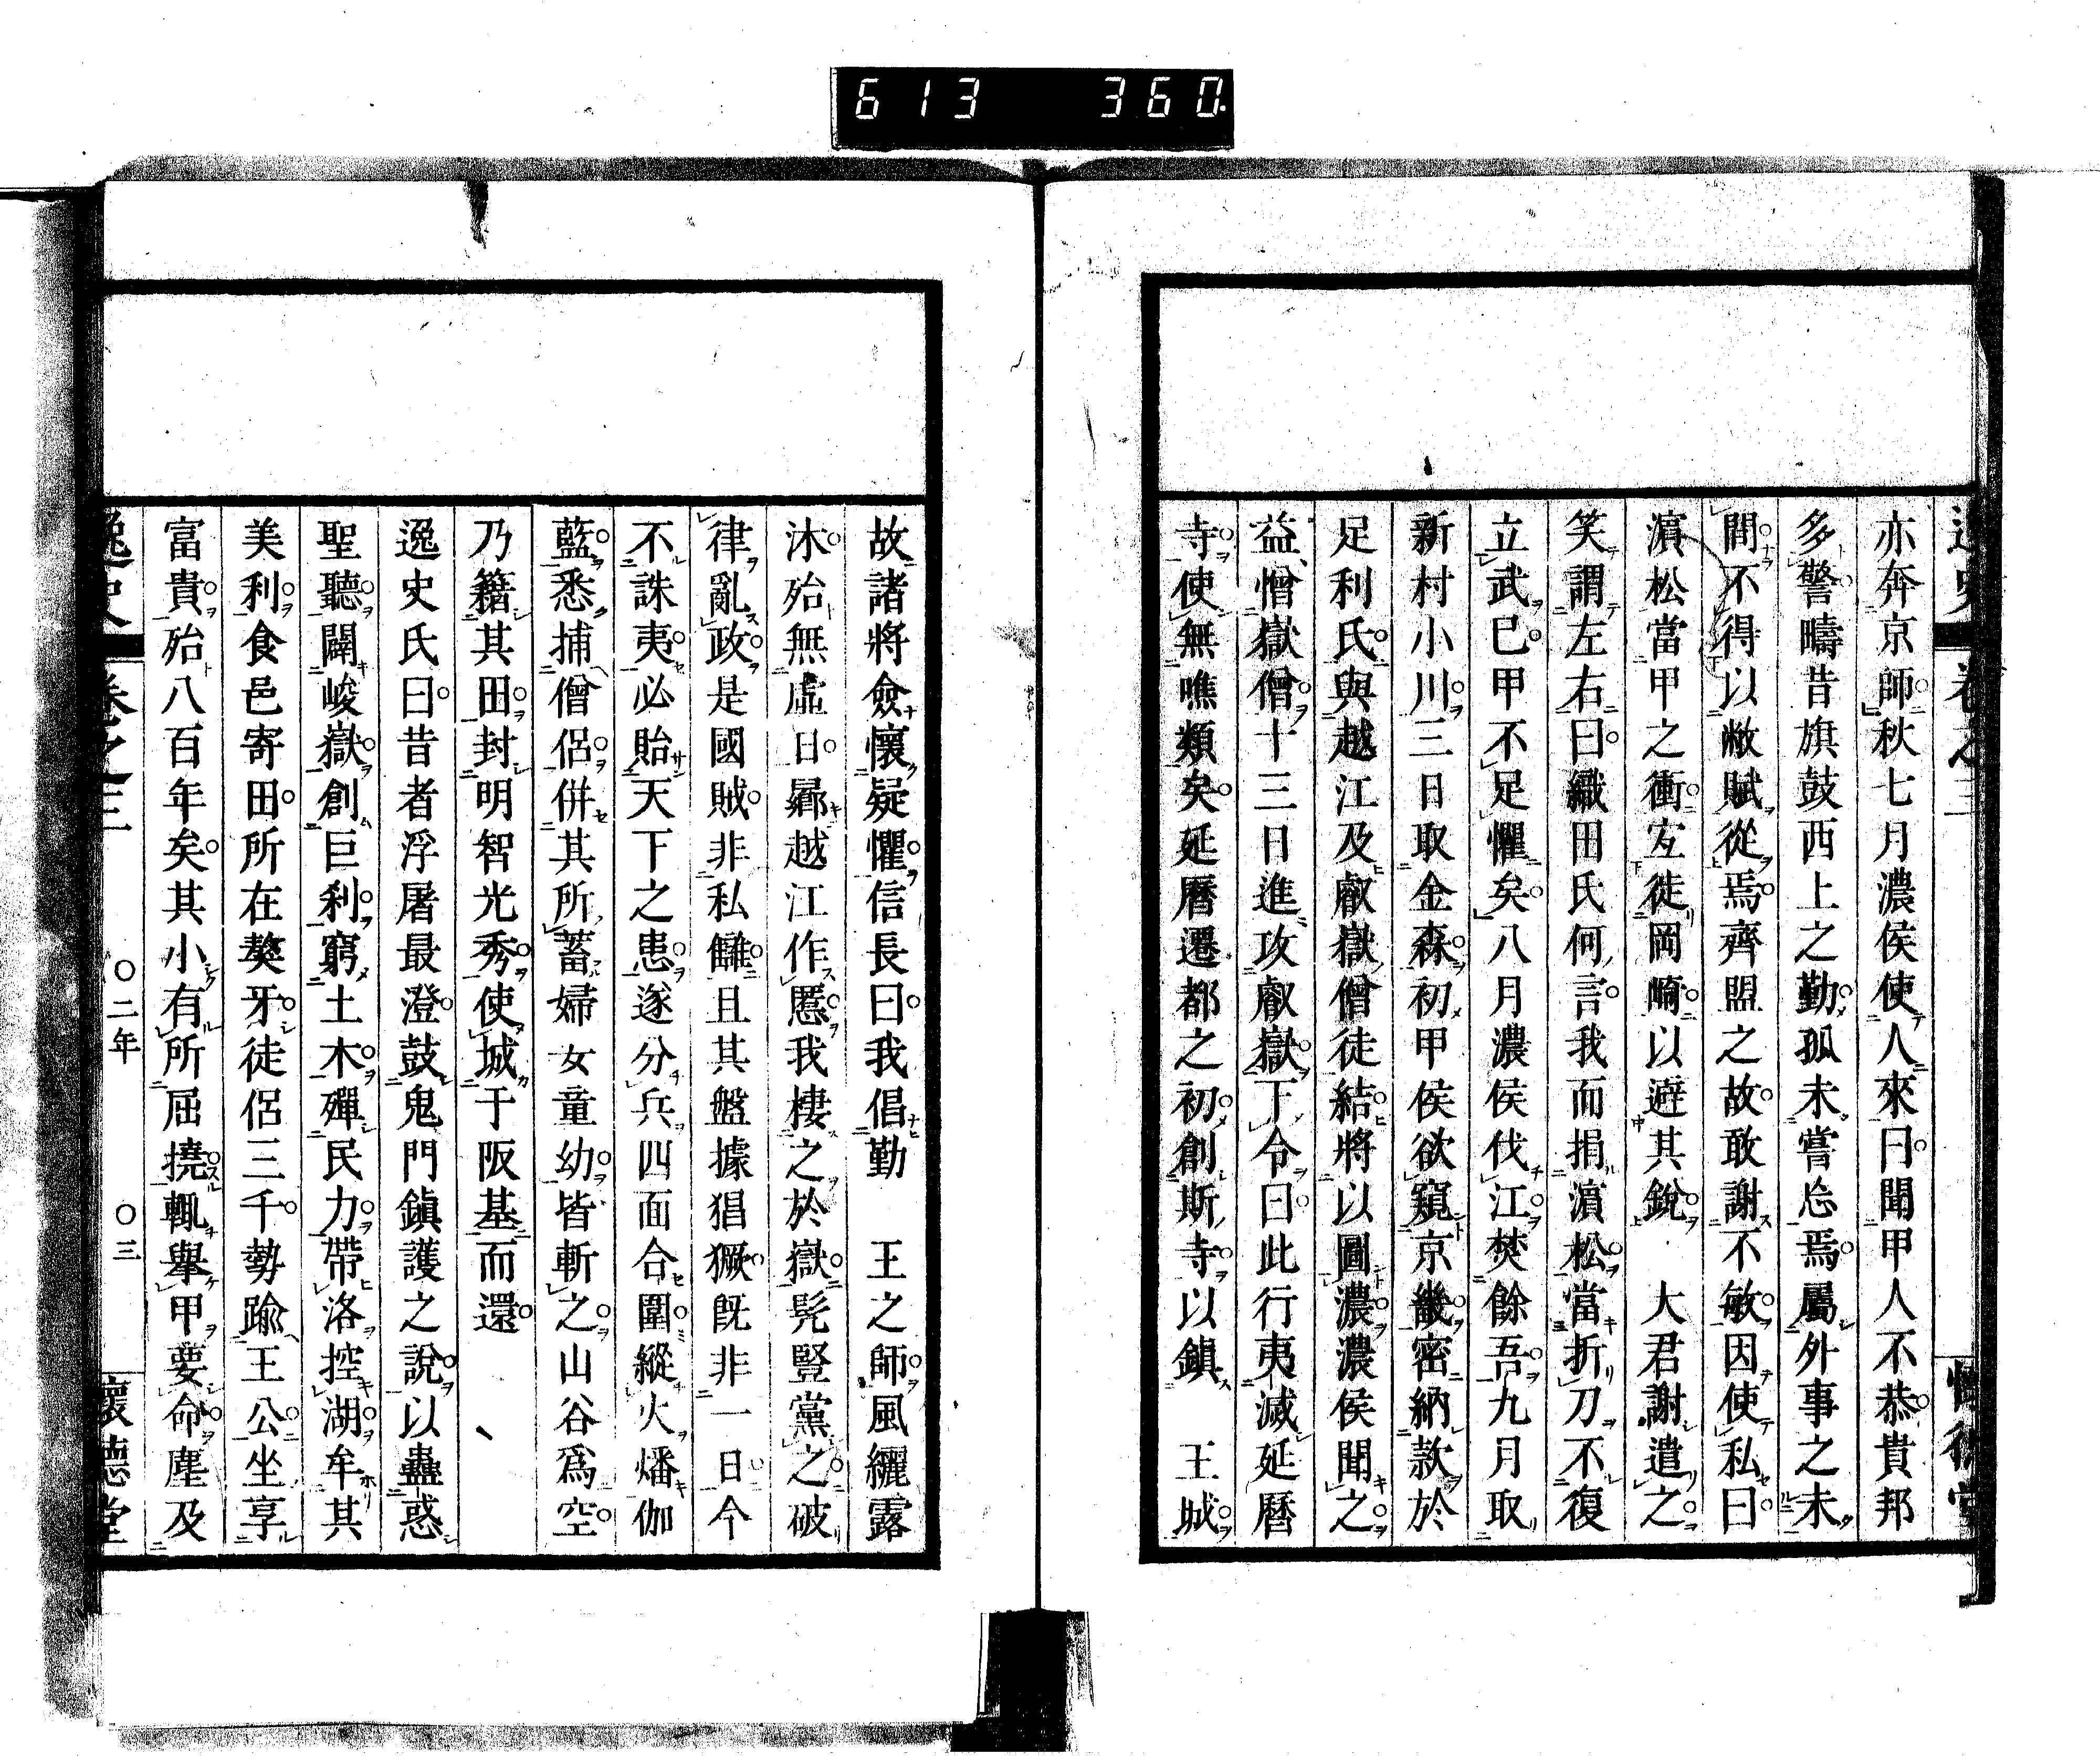 613 360
亦奔京師秋七月濃侯使人來曰聞甲人不恭貴邦
多警疇昔旗鼓西上之勤孤未嘗忘焉屬外事之未
間不得以敝賦從焉齊盟之故敢謝不敏因使私曰
濵松當甲之衝宜徒岡﨑以避其銳　大君謝遣之
笑謂左右曰織田氏何言我而捐濵松當折刀不復
立武已甲不足懼矣八月濃侯伐江焚餘吾九月取
新村小川三日取金森初甲侯欲窺京畿密納款於
足利氏與越江及叡嶽僧徒結將以圖濃濃侯聞之
益憎嶽僧十三日進攻叡嶽下令曰此行夷滅延曆
寺使無噍類矣延曆遷都之初創斯寺以鎮　王城
故諸將僉懷疑懼信長曰我倡勤　王之師風纚露
沐殆無虛日曏越江作慝我棲之於嶽髡豎黨之破
律亂政是國賊非私讎且其盤據猖獗既非一日今
不誅夷必貽天下之患遂分兵四面合圍縱火燔伽
藍悉捕僧侶併其所蓄婦女童幼皆斬之山谷爲空
乃籍其田封明智光秀使城于阪基而還
逸史氏曰昔者浮屠最澄鼓鬼門鎮護之說以蠱惑
聖聽闢峻嶽創巨刹窮土木殫民力帶洛控湖牟其
美利食邑寄田所在獒牙徒侶三千勢踰王公坐享
富貴殆八百年矣其小有所屈撓輒舉甲要命塵及
逸史 卷之三 〇二年 〇三 懷德堂